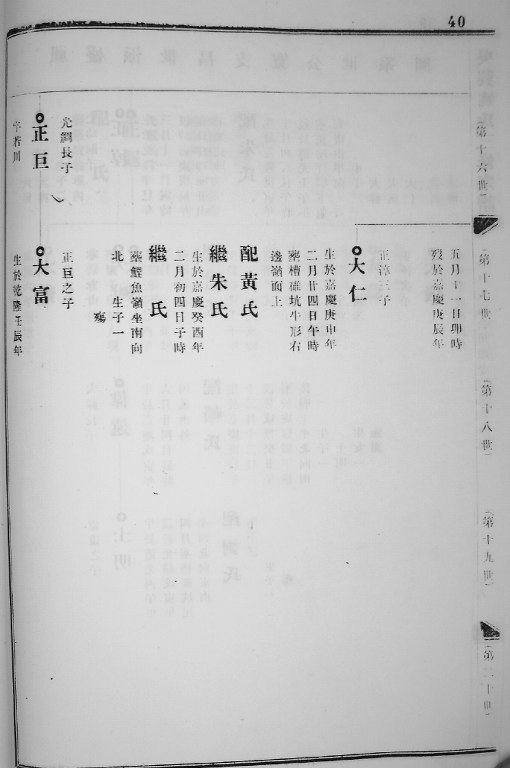 40
第十六世
第十七世
第十八世
第十九世
第二十世
五月十一日卯時
歿於嘉慶庚辰年
正淳三子
大仁
生於嘉慶庚申年
二月廿四日午時
葬槽碓坑牛形右
邊嶺面上
配黃氏
繼朱氏
生於嘉慶癸酉年
二月初四日子時
繼　氏
葬鯉魚嶺坐南向
北　生子一
殤
光調長子
正巨
字若川
正巨之子
大富
生於乾隆壬辰年